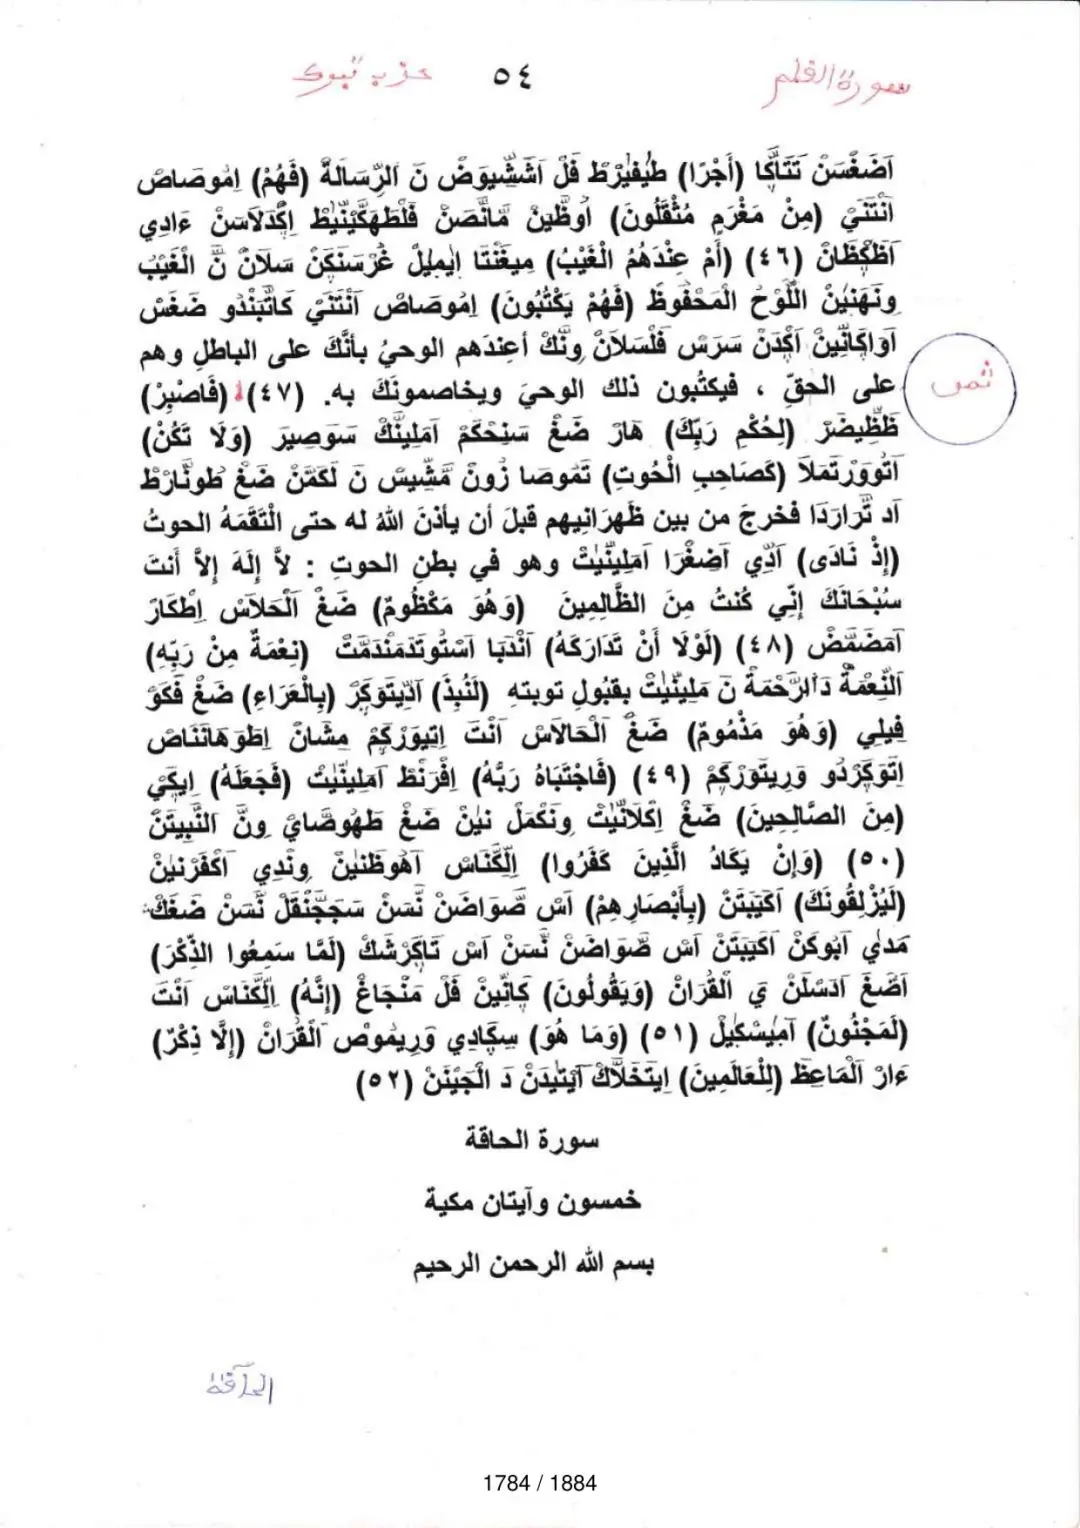 سورة القلم ٥٤ حزب تبرك
اَضَغْسَنْ تَتَاكَّا (أَجْرًا) طَيفَيْرْطْ فَلْ اَشَشِّيوَضْ نَ الرِّسَالَةْ (فَهُمْ) اِمُوصَاصْ
اَنْتَنَيْ (مِنْ مَغْرَمٍ مُثْقَلُونَ) اُوظَّيِنْ مَّانَّصَنْ فَلْطَهَكَّيْنِيْطْ اِكْدَلاَسَنْ ءَادِي
اَظْكِظَّانْ (٤٦) (أَمْ عِنْدَهُمُ الْغَيْبُ) مِيغَنْتَا اِيْمِيلْ غُرْسَنَكِنْ سَلاَنْ نَّ الْغَيْبْ
وِنَهَنْيِنْ اللَّوْحُ الْمَحْفُوظْ (فَهُمْ يَكْتُبُونَ) اِمُوصَاصْ اَنْتَنَيْ كَاتَبَنْدُو ضَغَسْ
اَوَاكَانِّينْ اَكِّدَنْ سَرَسْ فَلْسَلاَنْ وِنَّكْ أعِندَهم الوحيُ بأنَّكَ على الباطلِ وهم
على الحقِّ ، فيكتُبون ذلك الوحيَ ويخاصمونَكَ به. (٤٧) (فَاصْبِرْ)
ثمن
ظَظِّيضَرْ (لِحُكْمِ رَبِّكَ) هَارْ ضَغْ سَنِحْكَمْ اَمَلِينَّكْ سَوَصِيرَ (وَلَا تَكُنْ)
اَتُووَرْتَمَلاَ (كَصَاحِبِ الْحُوتِ) تَمُوصَا زُونْ مَّشِّيسْ نَ لَكَمَّنْ ضَغْ طُونَّارَطْ
اَد تَّرَارَدَا فخرجَ من بين ظَهرَانِيهم قبلَ أن يأذنَ اللهُ له حتى الْتَقَمَهُ الحوتُ
(إِذْ نَادَى) اَدِّي اَضَغْرَا اَمَلِينِيْتْ وهو في بطنِ الحوتِ : لاَّ إِلَهَ إِلاَّ أَنتَ
سُبْحَانَكَ إِنِّي كُنتُ مِنَ الظَّالِمِينَ (وَهُوَ مَكْظُومٌ) ضَغْ اَلْحَلاَسْ اِطْكَارْ
اَمَضَمَّضْ (٤٨) (لَوْلَا أَنْ تَدَارَكَهُ) اَنْدَبَا اَسْتُوتَدَمَنْدَمَّتْ (نِعْمَةٌ مِنْ رَبِّهِ)
اَلنِّعْمَةْ دَالرَّحْمَةْ نَ مَلِينِيْتْ بقبُولِ توبتهِ (لَنُبِذَ) اَدِّيتَوَكَرْ (بِالْعَرَاءِ) ضَغْ فَكَوْ
فِيلِي (وَهُوَ مَذْمُومٌ) ضَغْ اَلْحَالاَسْ اَنْتَ اِتِيوَرْكَمْ مِشَانْ اِطَوَهَانْنَاصْ
اِتَوَكَرْدُو وَرِيتَوَرْكَمْ (٤٩) (فَاجْتَبَاهُ رَبُّهُ) اِفْرَنْطْ اَمَلِينِيْتْ (فَجَعَلَهُ) اِيكَيْ
(مِنَ الصَّالِحِينَ) ضَغْ اِكْلاَنِّيْتْ وِنَكْمَلْ نِيْنْ ضَغْ طَهُوضَّايْ وِنَّ النَّبِيتَنْ
(٥٠) (وَإِنْ يَكَادُ الَّذِينَ كَفَرُوا) اِلْكَنَاسْ اَهُوظَنْيِنْ وِنْدِي اَكْفَرْنِيْنْ
(لَيُزْلِقُونَكَ) اَكَيَبَتَنْ (بِأَبْصَارِهِمْ) اَسْ صَّوَاضَنْ نَّسَنْ سَجَجَّنْقَلْ نَّسَنْ ضَغَكْ
مَدَيْ اَبُوكَنْ اَكَيَبَتَنْ اَسْ صَّوَاضَنْ نَّسَنْ اَسْ تَاكَرْشَكْ (لَمَّا سَمِعُوا الذِّكْرَ)
اَضَّغْ اَدَسْلَنْ يَ الْقُرَانْ (وَيَقُولُونَ) كَانِّينْ فَلْ مَنْجَاغْ (إِنَّهُ) اِلْكَنَاسْ اَنْتَ
(لَمَجْنُونٌ) اَمِيسْكِيْلْ (٥١) (وَمَا هُوَ) سِكَادِي وَرِيمُوصْ اَلْقُرَانْ (إِلَّا ذِكْرٌ)
ءَارْ اَلْمَاعِظَ (لِلْعَالَمِينَ) اِيتَخَلاَّكْ اَيْتِيدَنْ دَ الْجَيْنَنْ (٥٢)
سورة الحاقة
خمسون وآيتان مكية
بسم الله الرحمن الرحيم
الحآقة
1784 / 1884